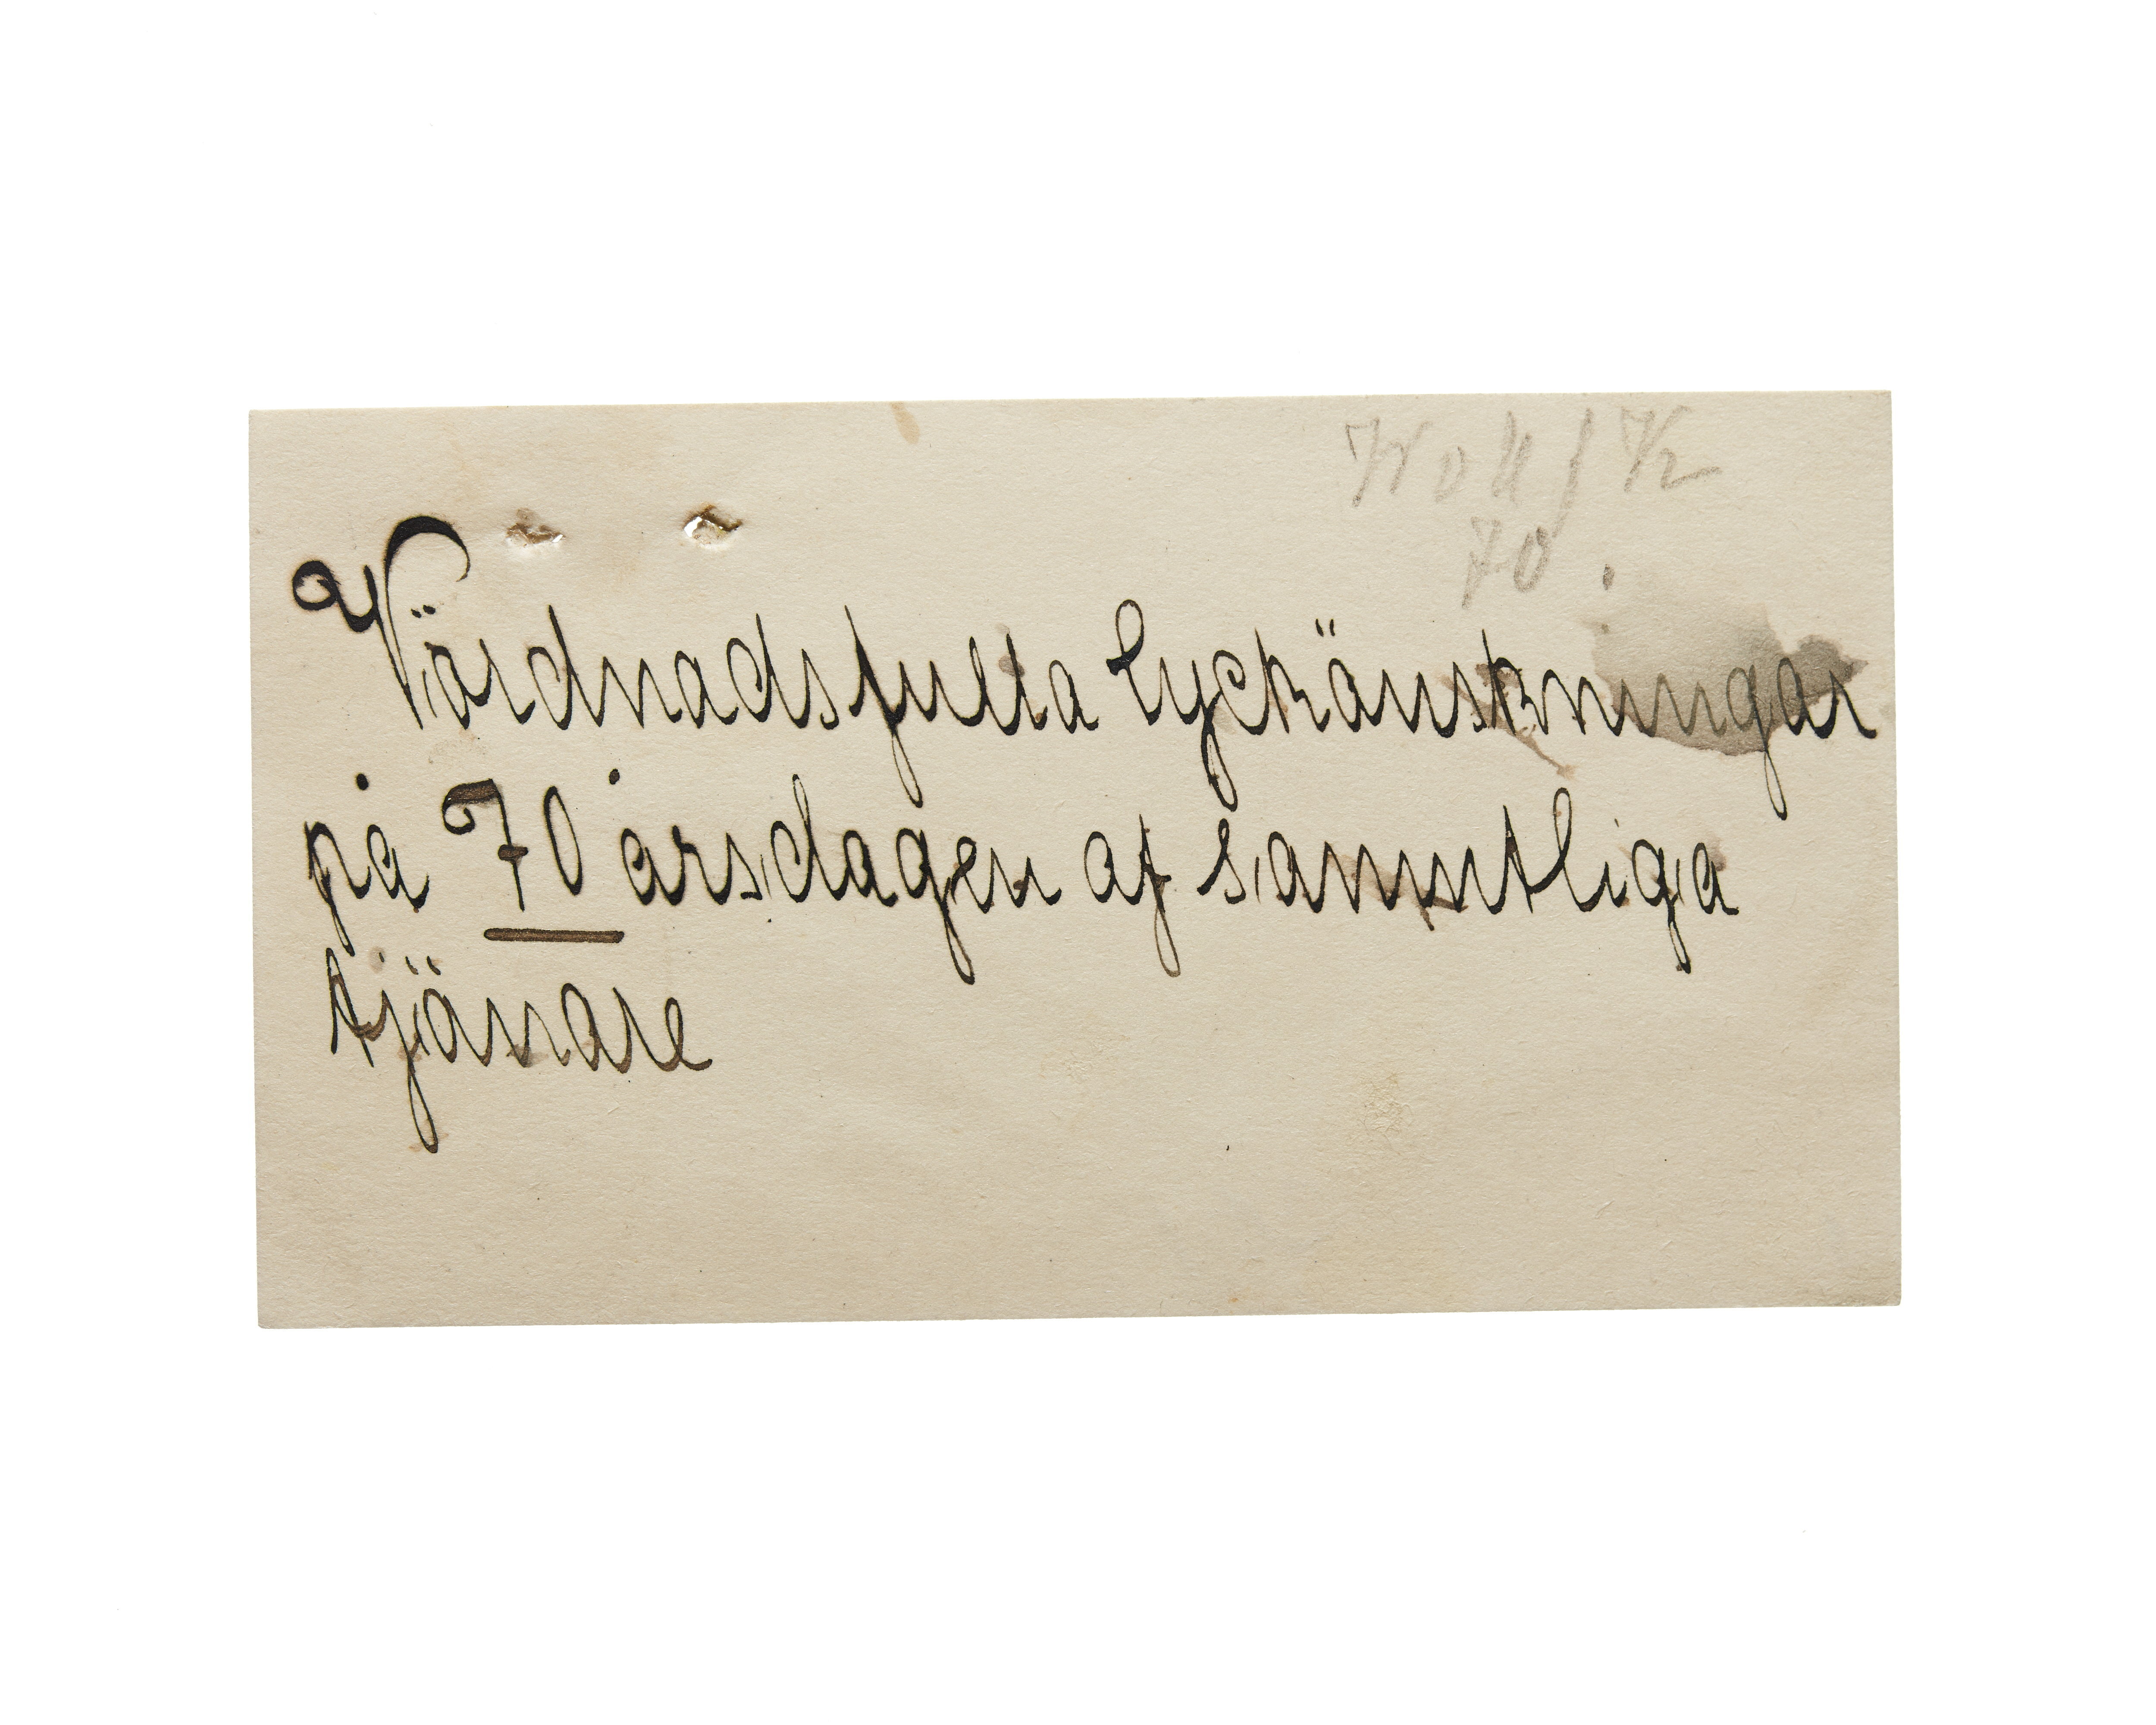 70.
Vördnadsfulla lyckönskningar
på 70 årsdagen af samtliga
tjänare